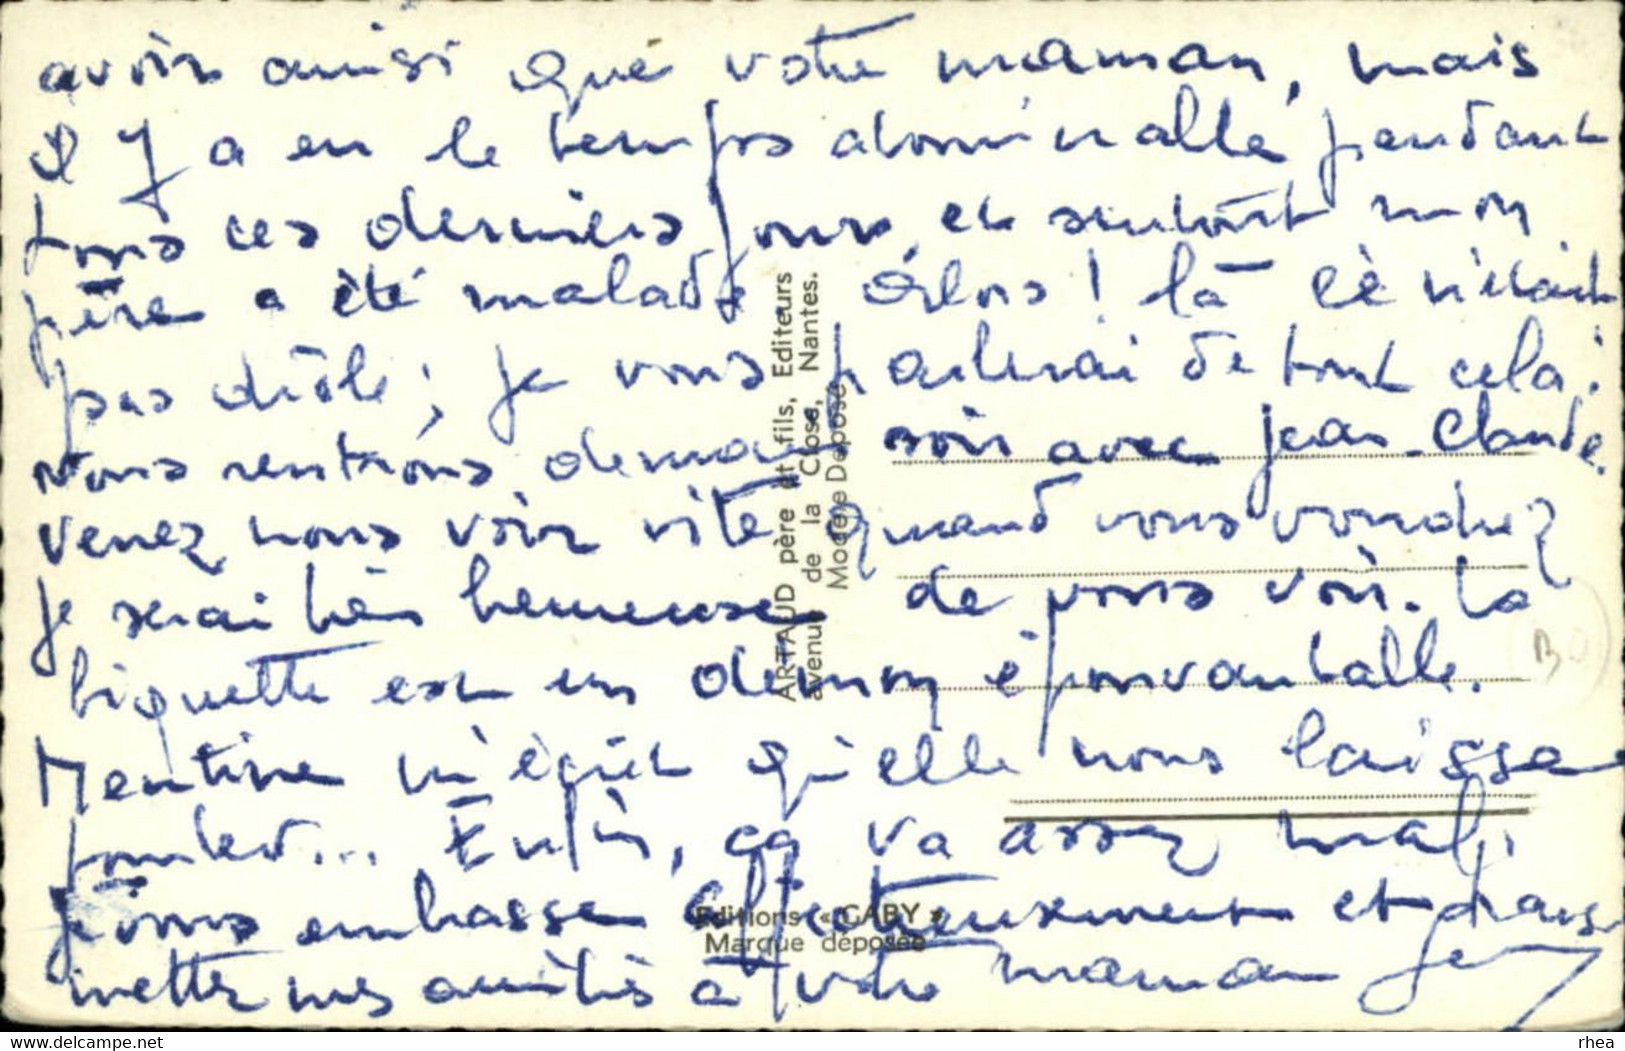 avoir ainsi que votre maman, mais
il y a eu le temps abominable pendant
tous ces derniers jours, et surtout mon
père a été malade Alors ! là ce n'était
pas drôle ; je vous parlerai de tout cela.
Nous rentrons demain soir avec Jean-Claude.
Venez nous voir vite quand vous voudrez
je serai bien heureuse de vous voir. La
biquette est un démon épouvantable.
Mentine m'écrit qu'elle nous laisse
tomber... Enfin, ça va assez mal.
Je vous embrasse affectueusement et trans-
mettez mes amitiés à votre maman
ARTAUD père et fils, Editeurs
avenue de la Close, Nantes.
Modèle Déposé
Editions « GABY »
Marque déposée
www.delcampe.net
rhea